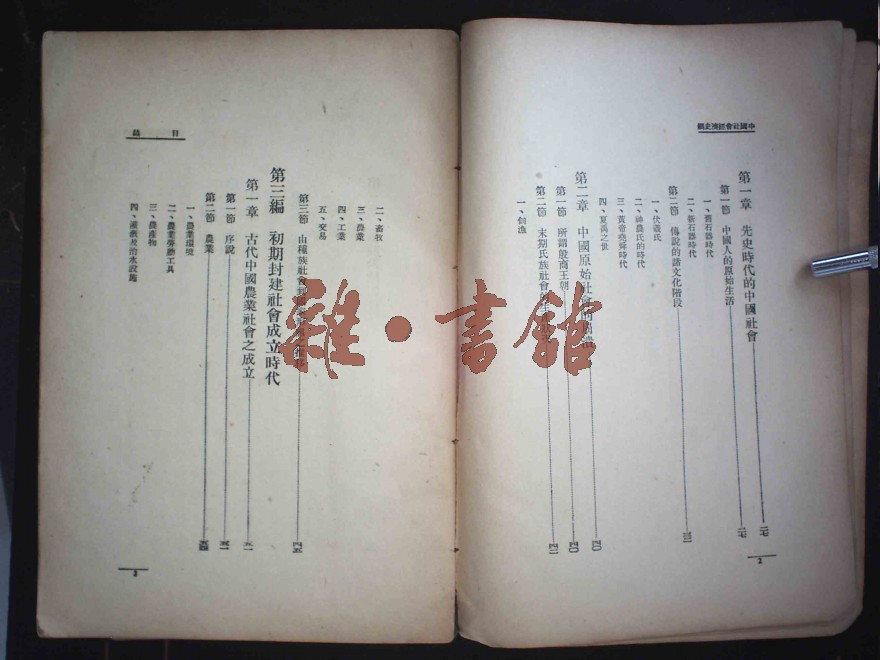 中國社會經濟史綱
第一章 先史時代的中國社會 二七
第一節 中國人的原始生活 二七
一、舊石器時代
二、新石器時代
第二節 傳說的諸文化階段 三一
一、伏羲氏
二、神農氏的時代
三、黃帝堯舜時代
四、夏禹之世
第二章 中國原始社會的 四〇
第一節 所謂殷商王朝 四〇
第二節 末期氏族社會 四二
一、漁
2
目錄
二、畜牧
三、農業
四、工業
五、交易
第三節 由種族社會到 四五
第三編 初期封建社會成立時代
第一章 古代中國農業社會之成立 五一
第一節 序說 五一
第二節 農業
一、農業環境
二、農業勞動工具
三、農產物
四、灌溉及治水設施
3
雜·書館